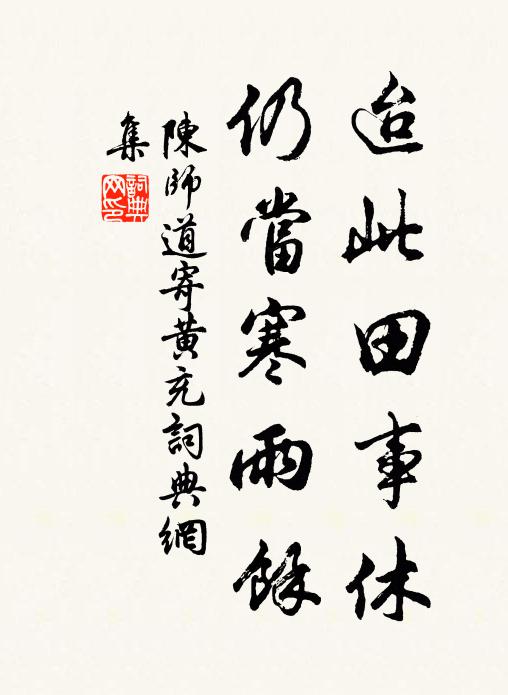 迨此田事休
仍當寒雨餘
陳師道寄黄充詞典網
集
詞典
网印